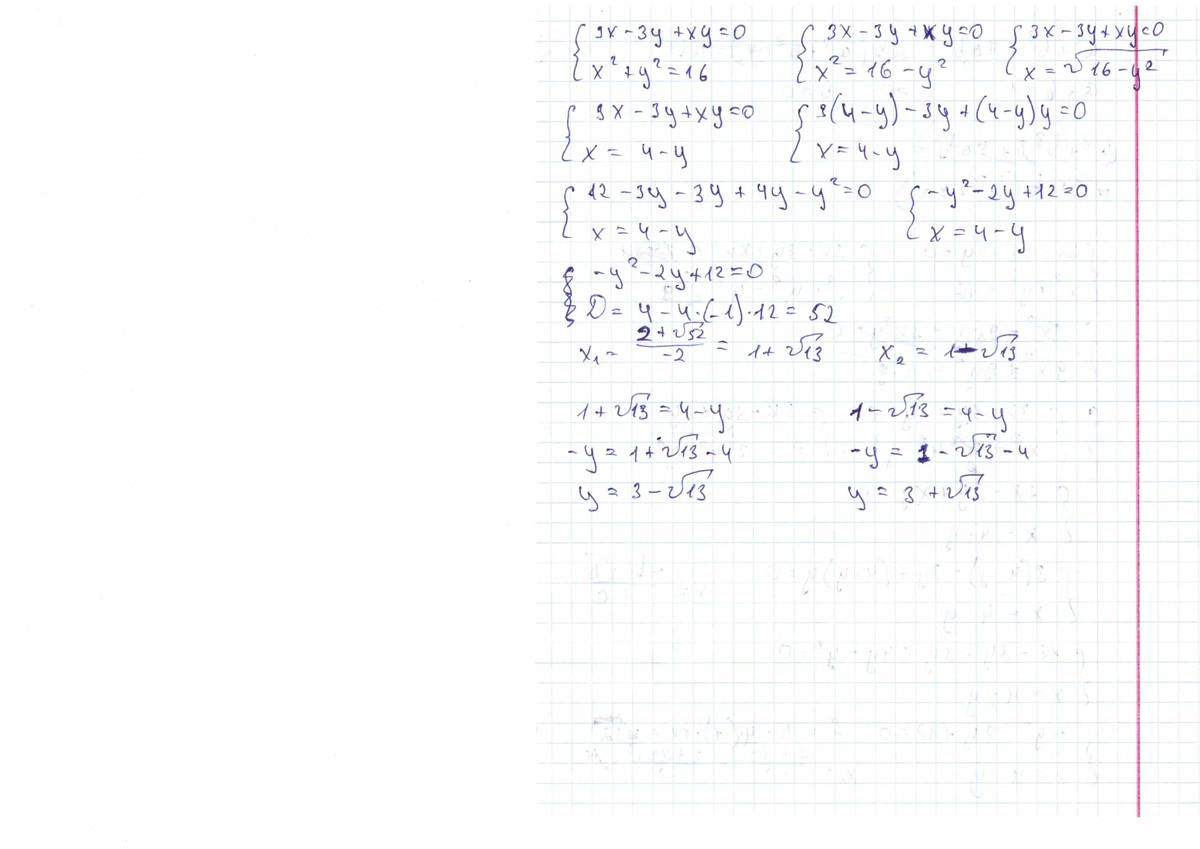 { 3x - 3y + xy = 0   { 3x - 3y + xy = 0   { 3x - 3y + xy = 0
{ x² + y² = 16   { x² = 16 - y²   { x = √16 - y²
{ 3x - 3y + xy = 0   { 3(4 - y) - 3y + (4 - y)y = 0
{ x = 4 - y   { x = 4 - y
{ 12 - 3y - 3y + 4y - y² = 0   { -y² - 2y + 12 = 0
{ x = 4 - y   { x = 4 - y
-y² - 2y + 12 = 0
D = 4 - 4·(-1)·12 = 52
x₁ = (2 + √52)/-2 = 1 + √13   x₂ = 1 - √13
1 + √13 = 4 - y   1 - √13 = 4 - y
-y = 1 + √13 - 4   -y = 1 - √13 - 4
y = 3 - √13   y = 3 + √13